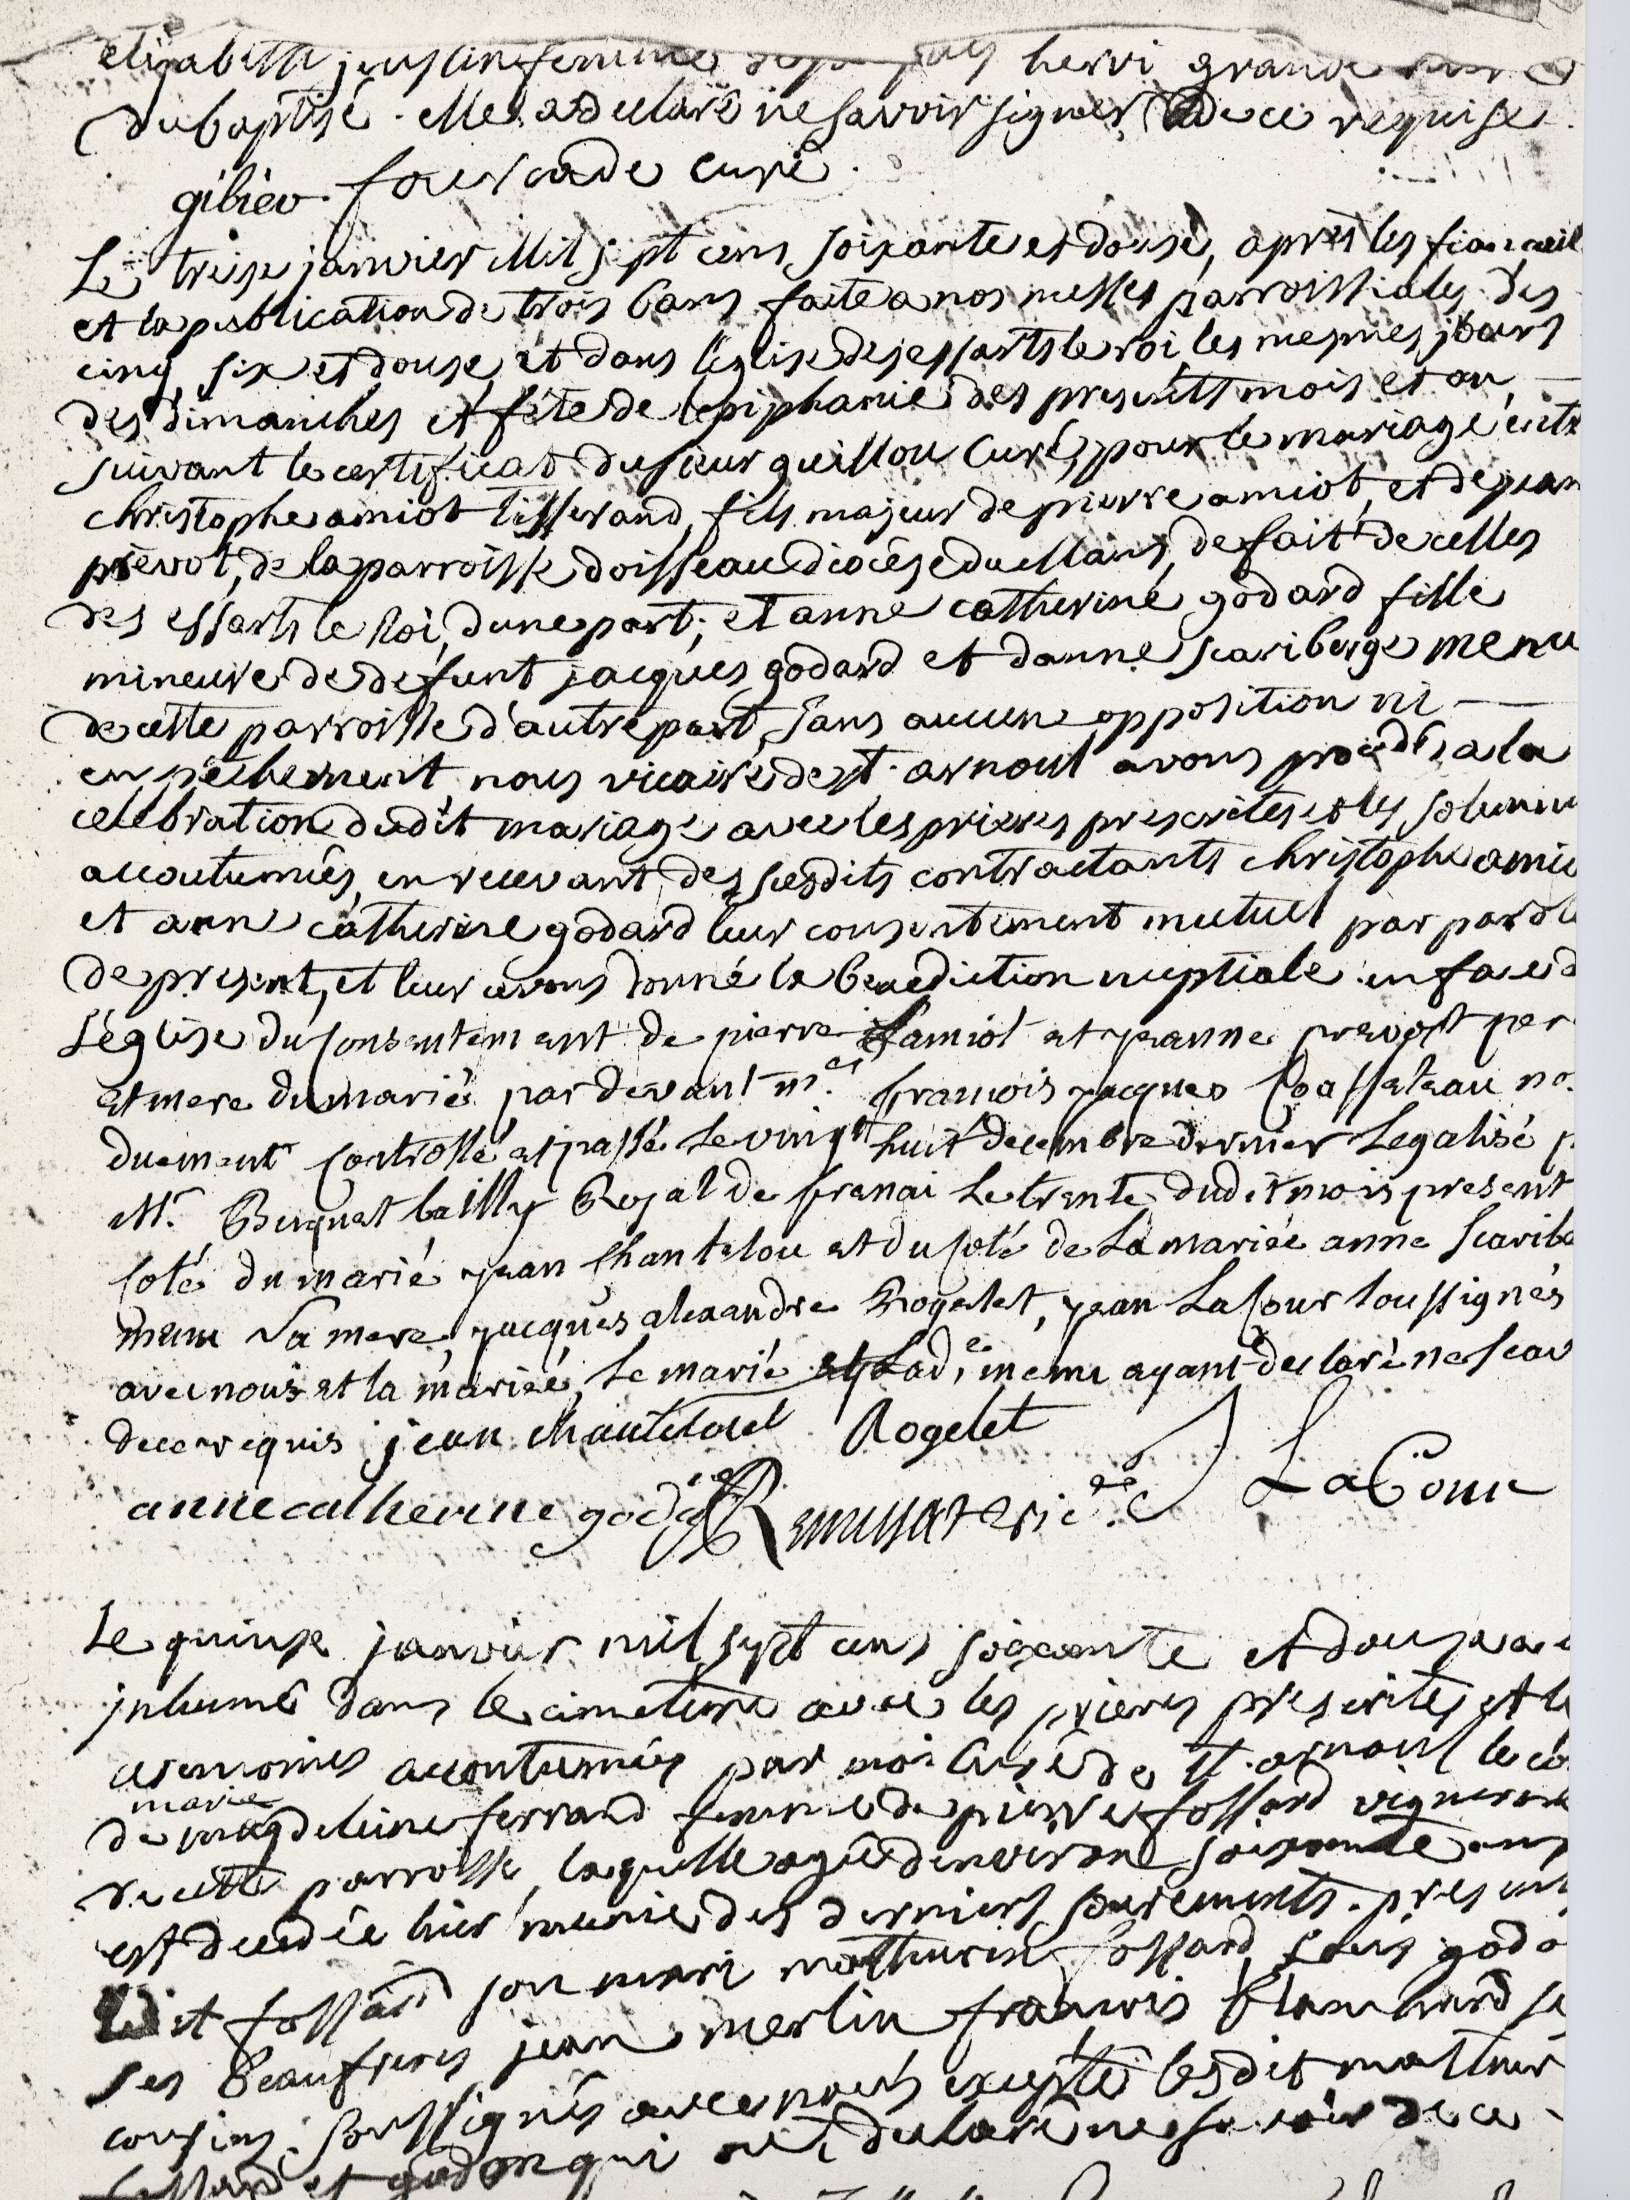 elizabeth femme hervi grande
du baptisé. elle a declaré ne savoir signer de ce requise.
gibier. fourcade curé.
Le treise janvier Mil sept cens soixante et douse, apres les fiancail
et la publication de trois bans faite a nos messes parroissiales des
cinq, six et douse, et dans l'eglise des essarts le roi, les mesmes jours
des dimanches et fête de l'epiphanie des presents mois et an,
suivant le certificat du sieur guillou Curé, pour le mariage entr
christophe amiot tisserand, fils majeur de pierre amiot, et de jean
prevot, de la parroisse doisseau diocèse du Mans, de fait de celles
des essarts le Roi, dune part; et anne catherine godard fille
mineure de defunt jacques godard et danne scariberge menu
de cette parroisse d'autre part, sans aucune opposition ni
enpêchement nous vicaire de st. arnoul avons procedé a la
celebration dudit mariage avec les prieres prescrites et les solemni
accoutumées, en recevant des susdits contractants christophe amio
et ann catherine godard leur consentement mutuel par parole
de present, et leur avons donné la benediction nuptiale en face d
L'eglise du consentement de pierre amiot et jeanne prevost per
et mere du marié par devant me. françois jacques no.
duement controllé et passé le vingt huit decembre dernier Legalisé p
Mr. bailly Royal de frenai Le trente dudit mois present
coté du marié jean Chantelou et du coté de La mariée anne Scaribe
menu Sa mere, jacques alexandre Rogelet, jean LaCour soussignés
avec nous et la mariée, Le marié et Lade. menu ayant declaré ne scav
de ce requis jean chantelout Rogelet
anne catherine godard LaCour
Le quinse janvier mil sept cens soixante et douse a é
jnhumé dans le cimetiere avec les prieres prescrites et le
ceremonies accoutumées par moi Curé de st. arnoul le co
marie
de magdeleine ferrand femme de pierre fossard vigneron
de cette parroisse, laquelle agée denviron soixante ans
est decedée hier munie des derniers sacrements. presents
Ledit fossard son mari mathurin fossard, Louis godo
ses Beaufreres jean merlin françois Blanchard se
cousins soussignés avec nous excepté lesdit mathur
fossard et godon qui ont declaré ne savoir de ce